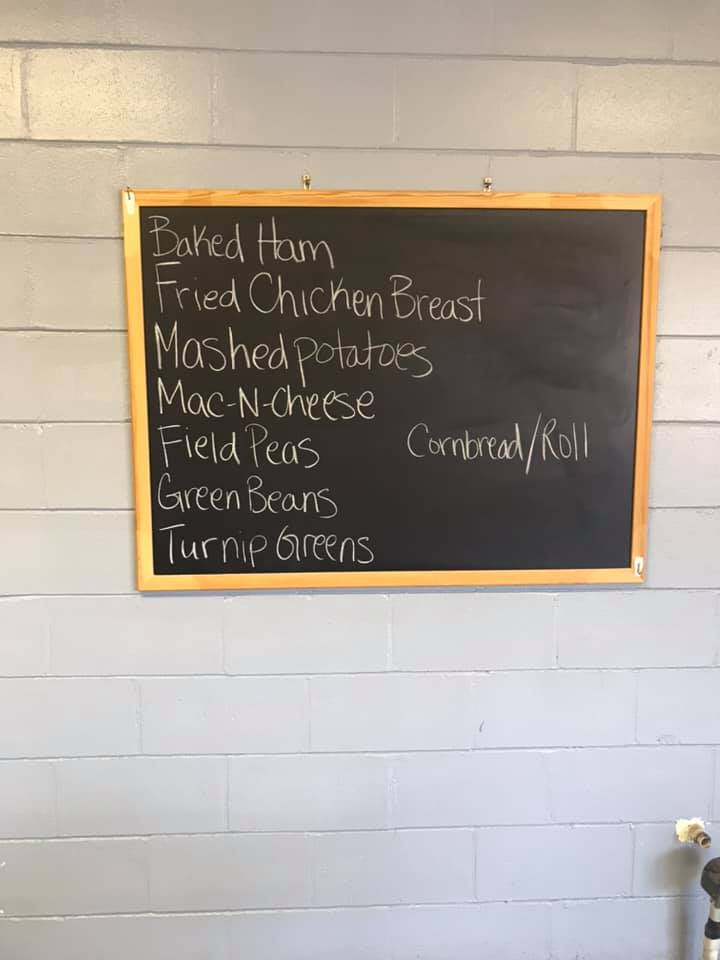 Baked Ham
Fried Chicken Breast
Mashed potatoes
Mac-N-Cheese
Field Peas
Cornbread/Roll
Green Beans
Turnip Greens